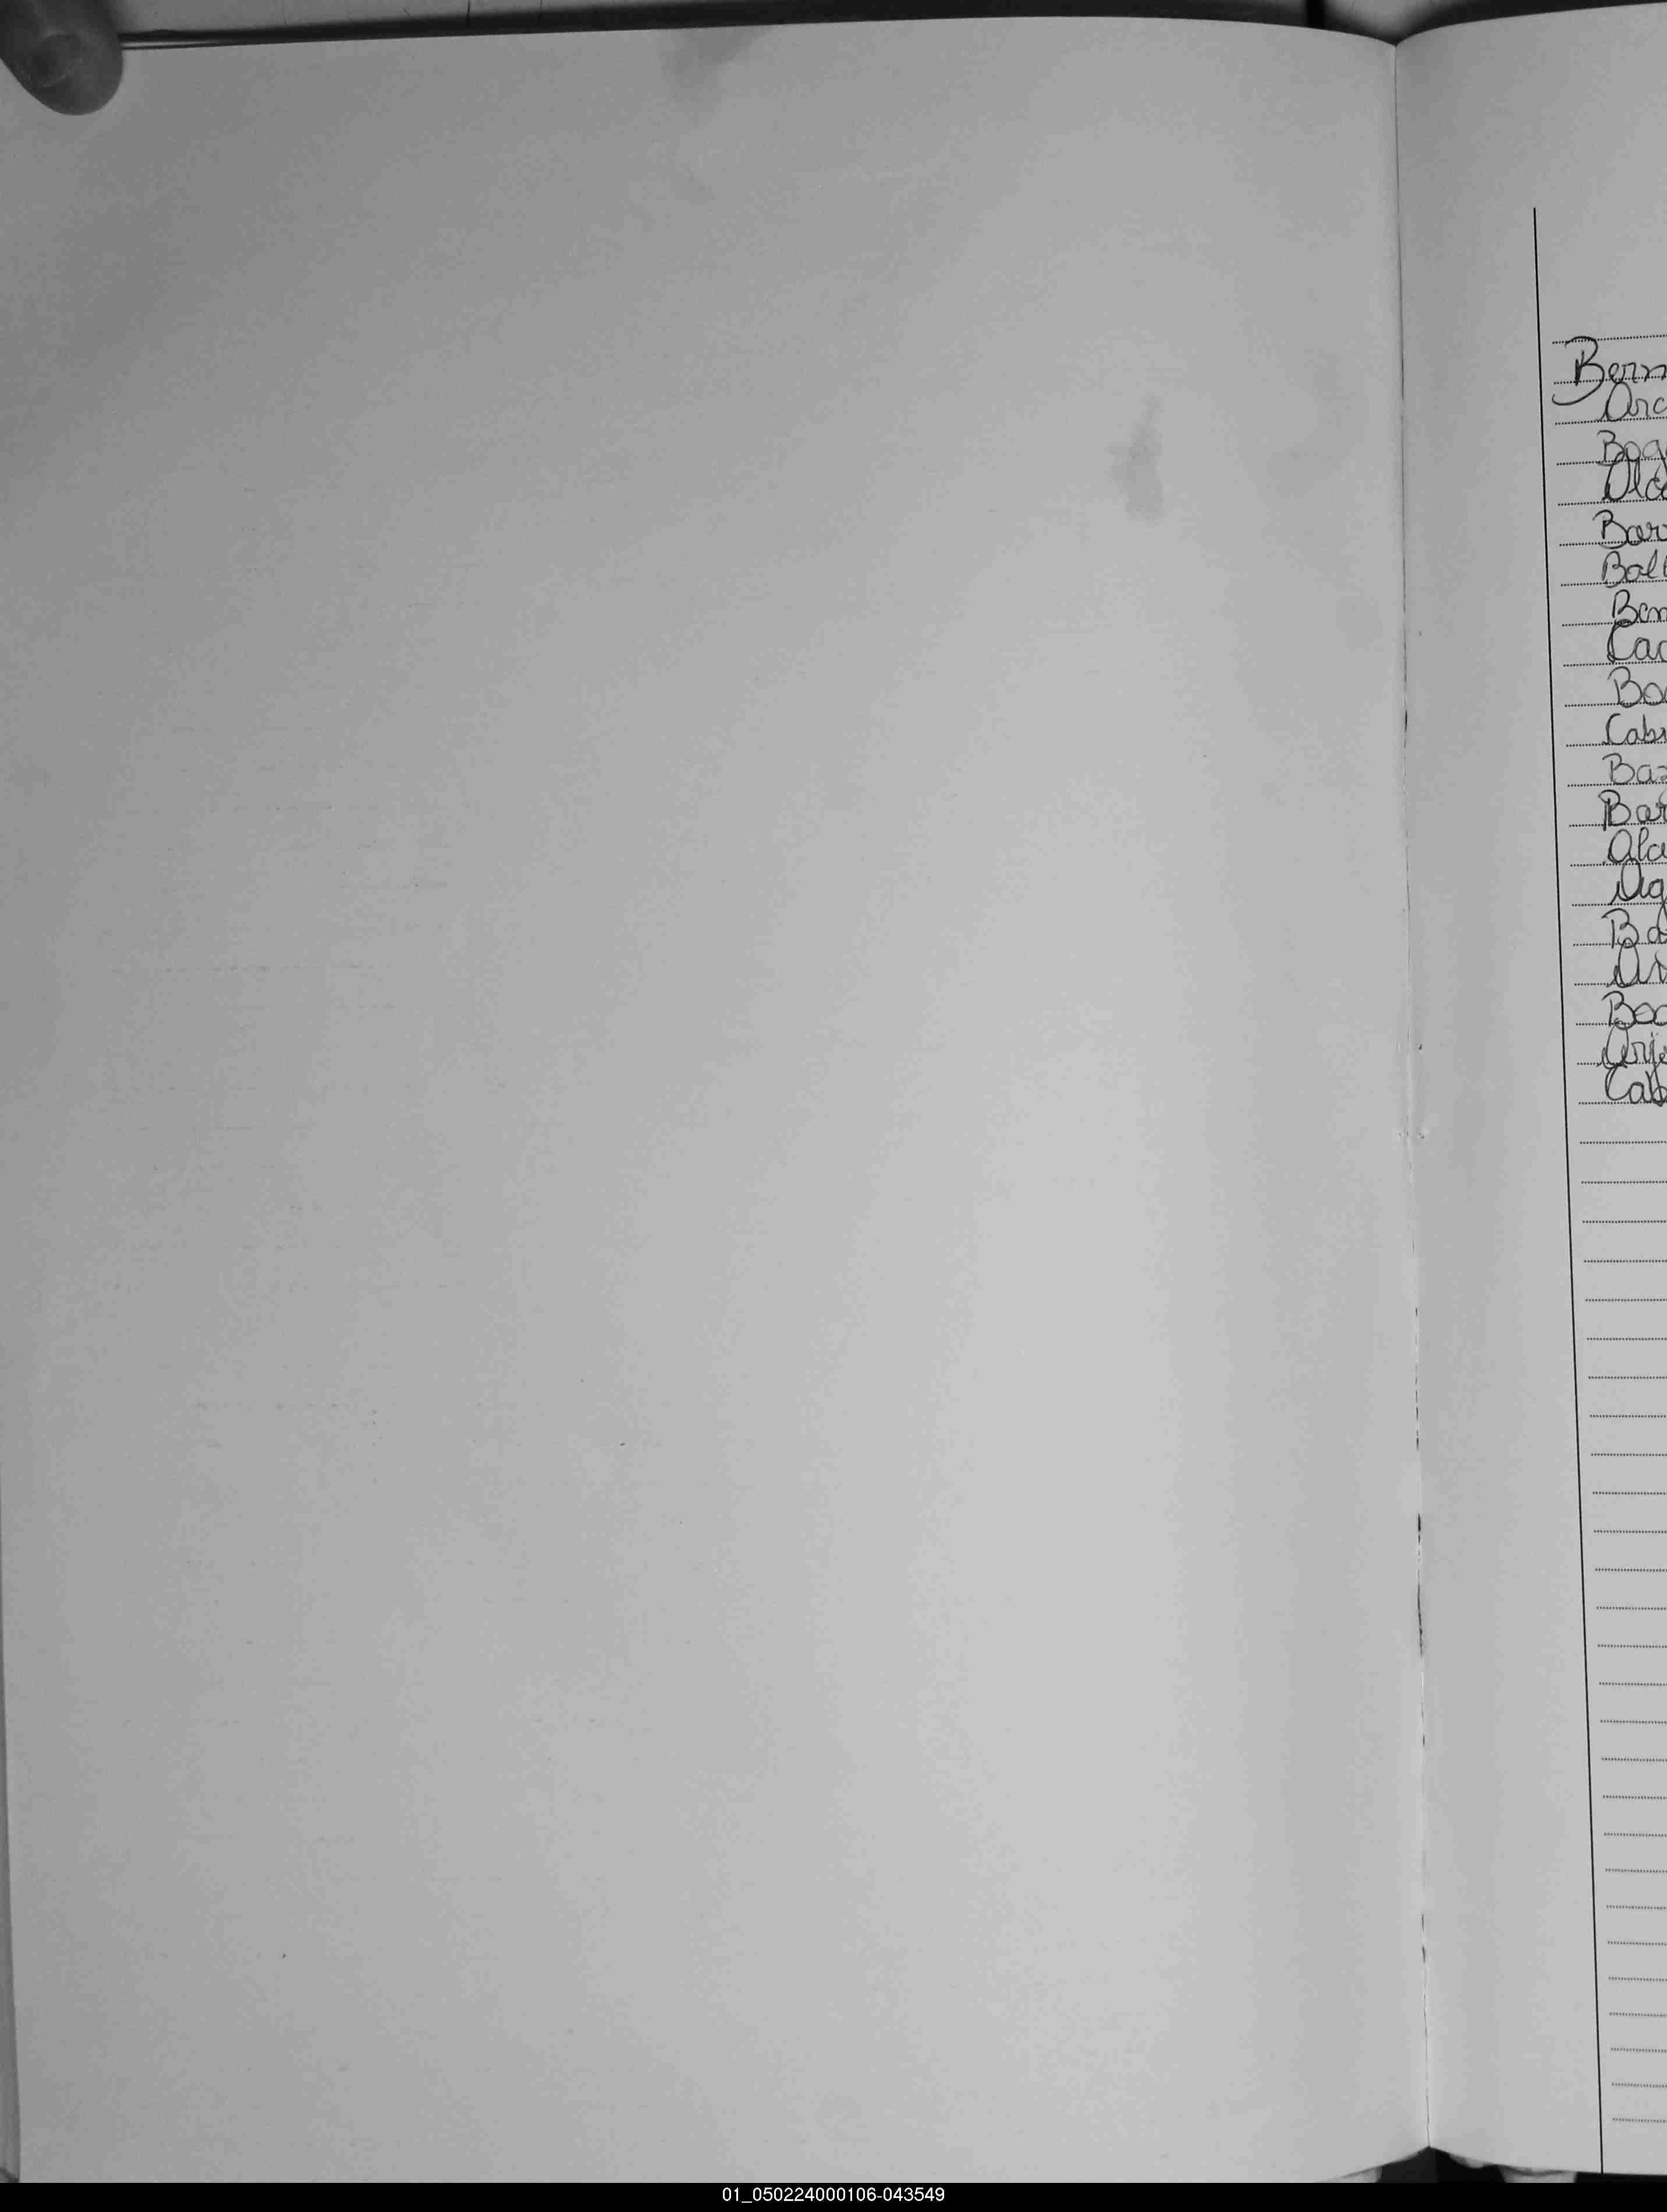 Bern
Arc
Bog
Alca
Barr
Balb
Ben
Cac
Bo
Cabr
Baz
Bar
Ala
Ag
Ba
Bac
Arj
Cab
01_050224000106-043549